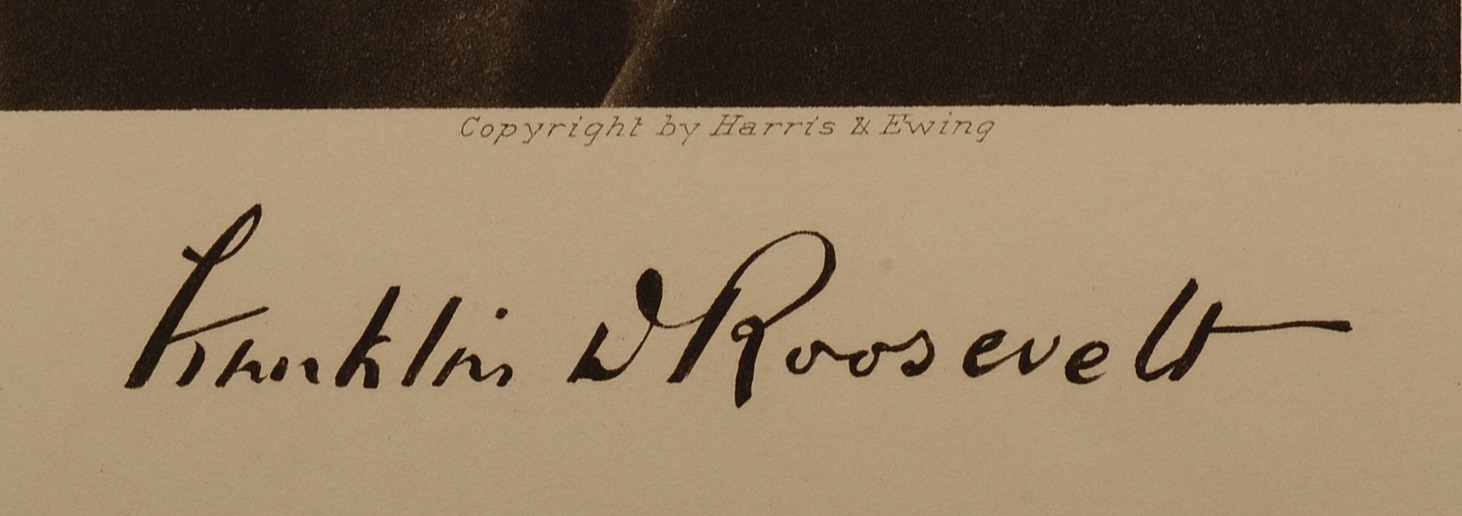 Copyright by Harris & Ewing
Franklin D Roosevelt